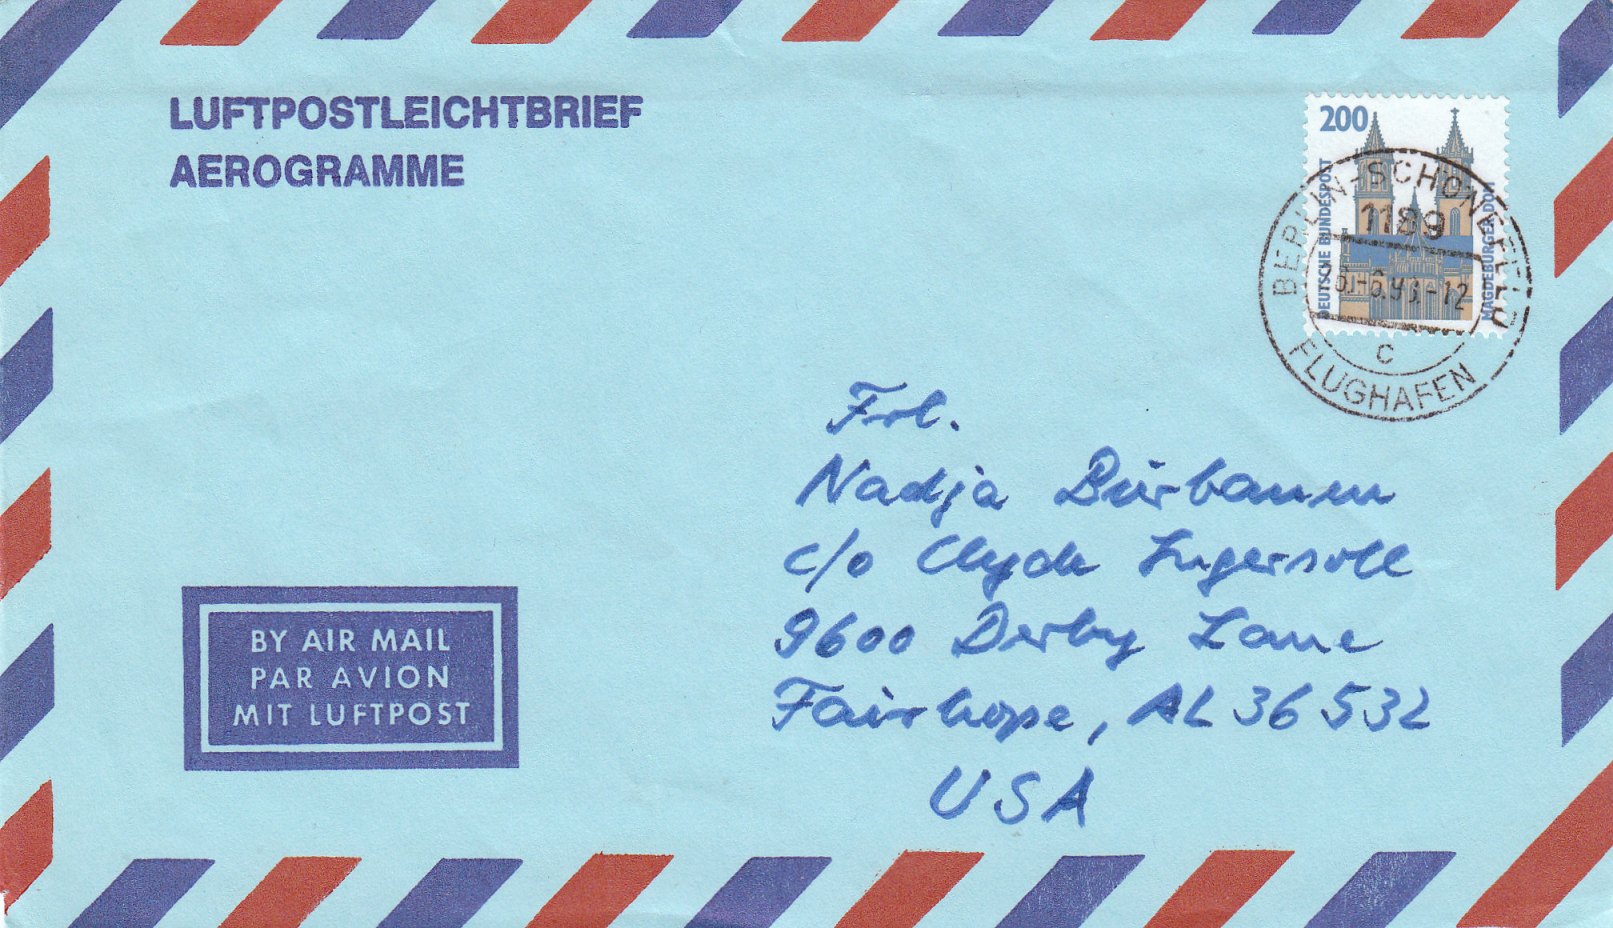 LUFTPOSTLEICHTBRIEF
AEROGRAMME
200
DEUTSCHE BUNDESPOST
MAGDEBURGER DOM
BERLIN-SCHÖNEFELD
1189
-6.93.-12
c
FLUGHAFEN
Frl.
Nadja Bürbaum
c/o Clyde Ingersoll
9600 Derby Lane
Fairhope, AL 36532
USA
BY AIR MAIL
PAR AVION
MIT LUFTPOST